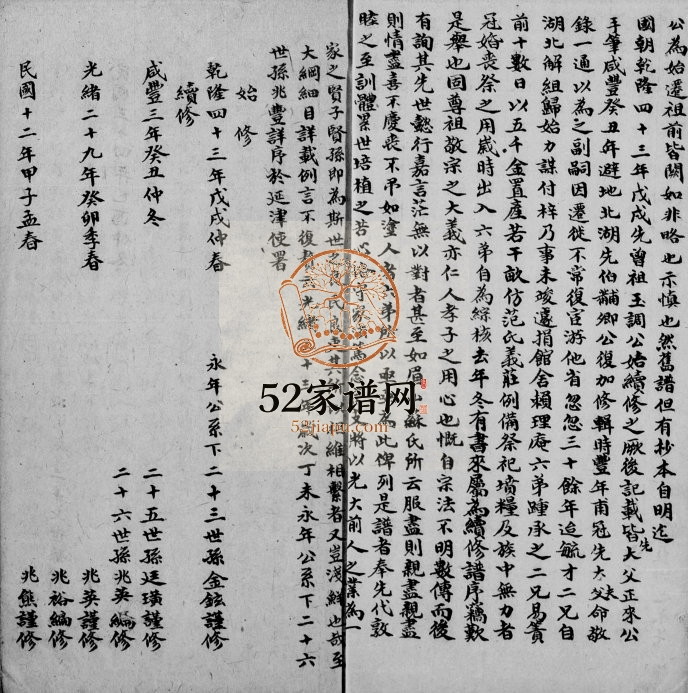 公為始遷祖前皆闕如非略也示慎也然舊譜但有抄本自明迄
國朝乾隆四十三年戊戌先曾祖玉調公始續修之厥後記載皆先大父正來公
手筆咸豐癸丑年避地北湖先伯黼卿公復加修輯時豐年甫冠先大夫命敬
錄一通以為之副嗣因遷徙不常復宦游他省忽忽三十餘年迨毓才二兄自
湖北解組歸始力謀付梓乃事未竣遽捐館舍賴理庵六弟踵承之二兄易簀
前十數日以五千金置產若干畝仿范氏義莊例備祭祀墳糧及族中無力者
冠婚喪祭之用歲時出入六弟自為綜核去年冬有書來屬為續修譜序竊歎
是舉也固尊祖敬宗之大義亦仁人孝子之用心也慨自宗法不明數傳而後
有詢其先世懿行嘉言茫無以對者甚至如眉山蘇氏所云服盡則親盡親盡
則情盡喜不慶喪不弔如塗人者六弟 以亟 為此俾列是譜者奉先代敦
睦之至訓體累世培植之苦心 守家 篤念 支將以光大前人之業為一
家之賢子賢孫即為斯世之良民良士 維相繫者又豈淺鮮也哉至
大綱細目詳載例言不復贅云光緒 十三年歲次丁未永年公系下二十六
世孫兆豐詳序於延津使署
始修
乾隆四十三年戊戌仲春 永年公系下二十三世孫金鉉謹修
續修
咸豐三年癸丑仲冬 二十五世孫廷璜謹修
光緒二十九年癸卯季春 二十六世孫兆英編修
兆英謹修
兆裕編修
民國十二年甲子孟春 兆熊謹修
52家谱网
52jiapu.com